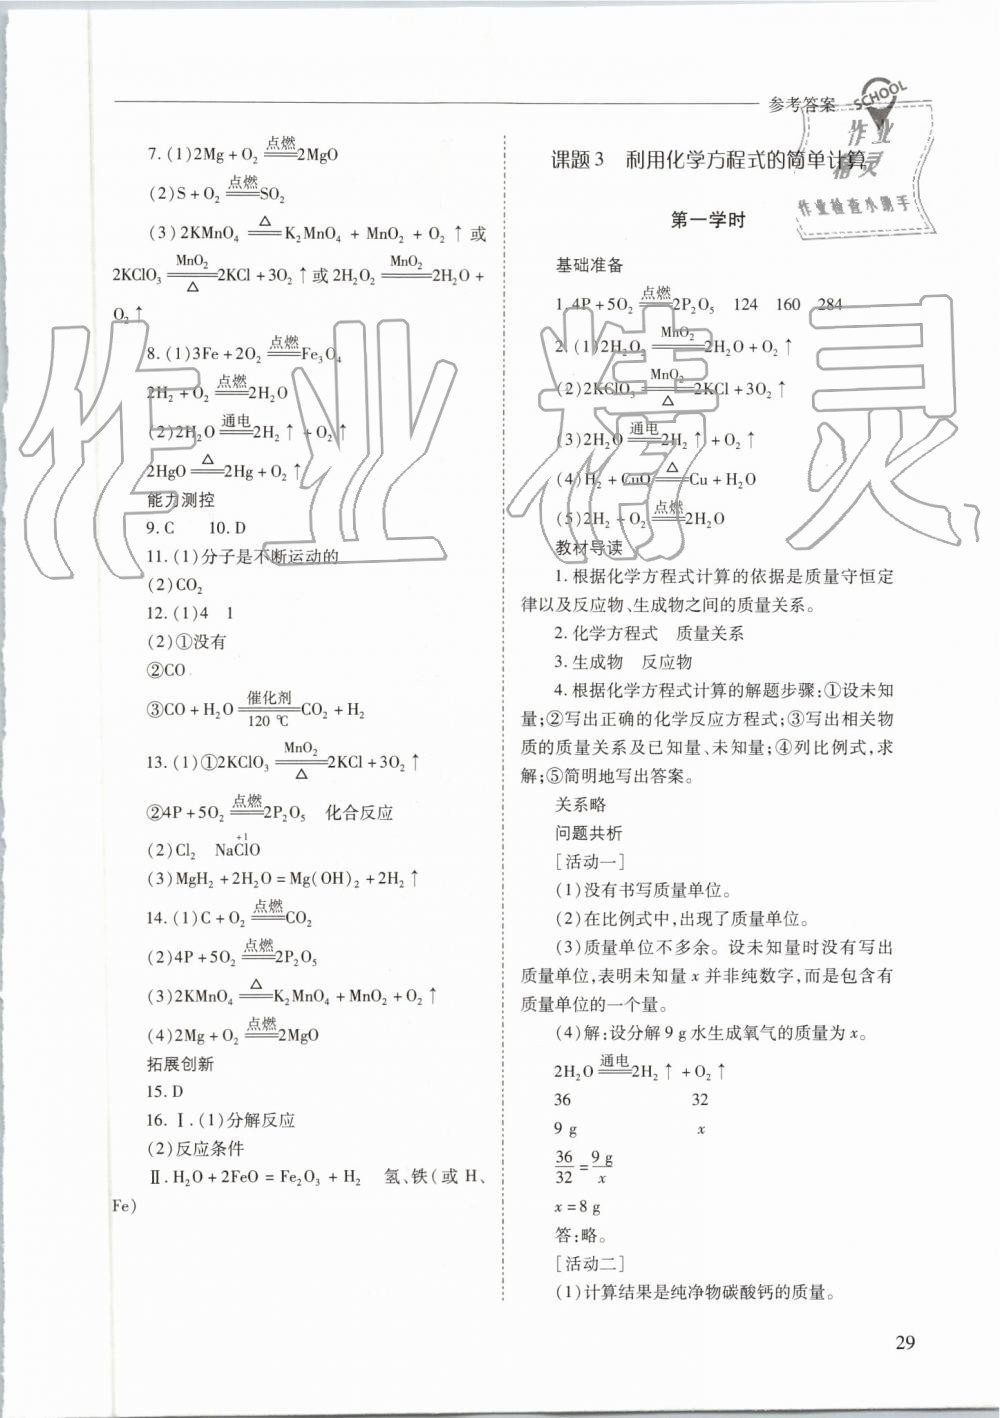 参考答案
SCHOOL
作业
精灵
作业检查小助手
7.(1)2Mg+O₂ =点燃= 2MgO
(2)S+O₂ =点燃= SO₂
(3)2KMnO₄ =△= K₂MnO₄+MnO₂+O₂↑或
2KClO₃ =MnO₂/△= 2KCl+3O₂↑或2H₂O₂ =MnO₂= 2H₂O+
O₂↑
8.(1)3Fe+2O₂ =点燃= Fe₃O₄
2H₂+O₂ =点燃= 2H₂O
(2)2H₂O =通电= 2H₂↑+O₂↑
2HgO =△= 2Hg+O₂↑
能力测控
9.C 10.D
11.(1)分子是不断运动的
(2)CO₂
12.(1)4 1
(2)①没有
②CO
③CO+H₂O =催化剂/120 ℃= CO₂+H₂
13.(1)①2KClO₃ =MnO₂/△= 2KCl+3O₂↑
②4P+5O₂ =点燃= 2P₂O₅ 化合反应
(2)Cl₂ NaC⁺¹lO
(3)MgH₂+2H₂O=Mg(OH)₂+2H₂↑
14.(1)C+O₂ =点燃= CO₂
(2)4P+5O₂ =点燃= 2P₂O₅
(3)2KMnO₄ =△= K₂MnO₄+MnO₂+O₂↑
(4)2Mg+O₂ =点燃= 2MgO
拓展创新
15.D
16.Ⅰ.(1)分解反应
(2)反应条件
Ⅱ.H₂O+2FeO=Fe₂O₃+H₂ 氢、铁(或H、
Fe)
课题3 利用化学方程式的简单计算
第一学时
基础准备
1.4P+5O₂ =点燃= 2P₂O₅ 124 160 284
2.(1)2H₂O₂ =MnO₂= 2H₂O+O₂↑
(2)2KClO₃ =MnO₂/△= 2KCl+3O₂↑
(3)2H₂O =通电= 2H₂↑+O₂↑
(4)H₂+CuO =△= Cu+H₂O
(5)2H₂+O₂ =点燃= 2H₂O
教材导读
1.根据化学方程式计算的依据是质量守恒定
律以及反应物、生成物之间的质量关系。
2.化学方程式 质量关系
3.生成物 反应物
4.根据化学方程式计算的解题步骤:①设未知
量;②写出正确的化学反应方程式;③写出相关物
质的质量关系及已知量、未知量;④列比例式,求
解;⑤简明地写出答案。
关系略
问题共析
[活动一]
(1)没有书写质量单位。
(2)在比例式中,出现了质量单位。
(3)质量单位不多余。设未知量时没有写出
质量单位,表明未知量x并非纯数字,而是包含有
质量单位的一个量。
(4)解:设分解9 g水生成氧气的质量为x。
2H₂O =通电= 2H₂↑+O₂↑
36 32
9 g x
36/32=9 g/x
x=8 g
答:略。
[活动二]
(1)计算结果是纯净物碳酸钙的质量。
29
作业精灵